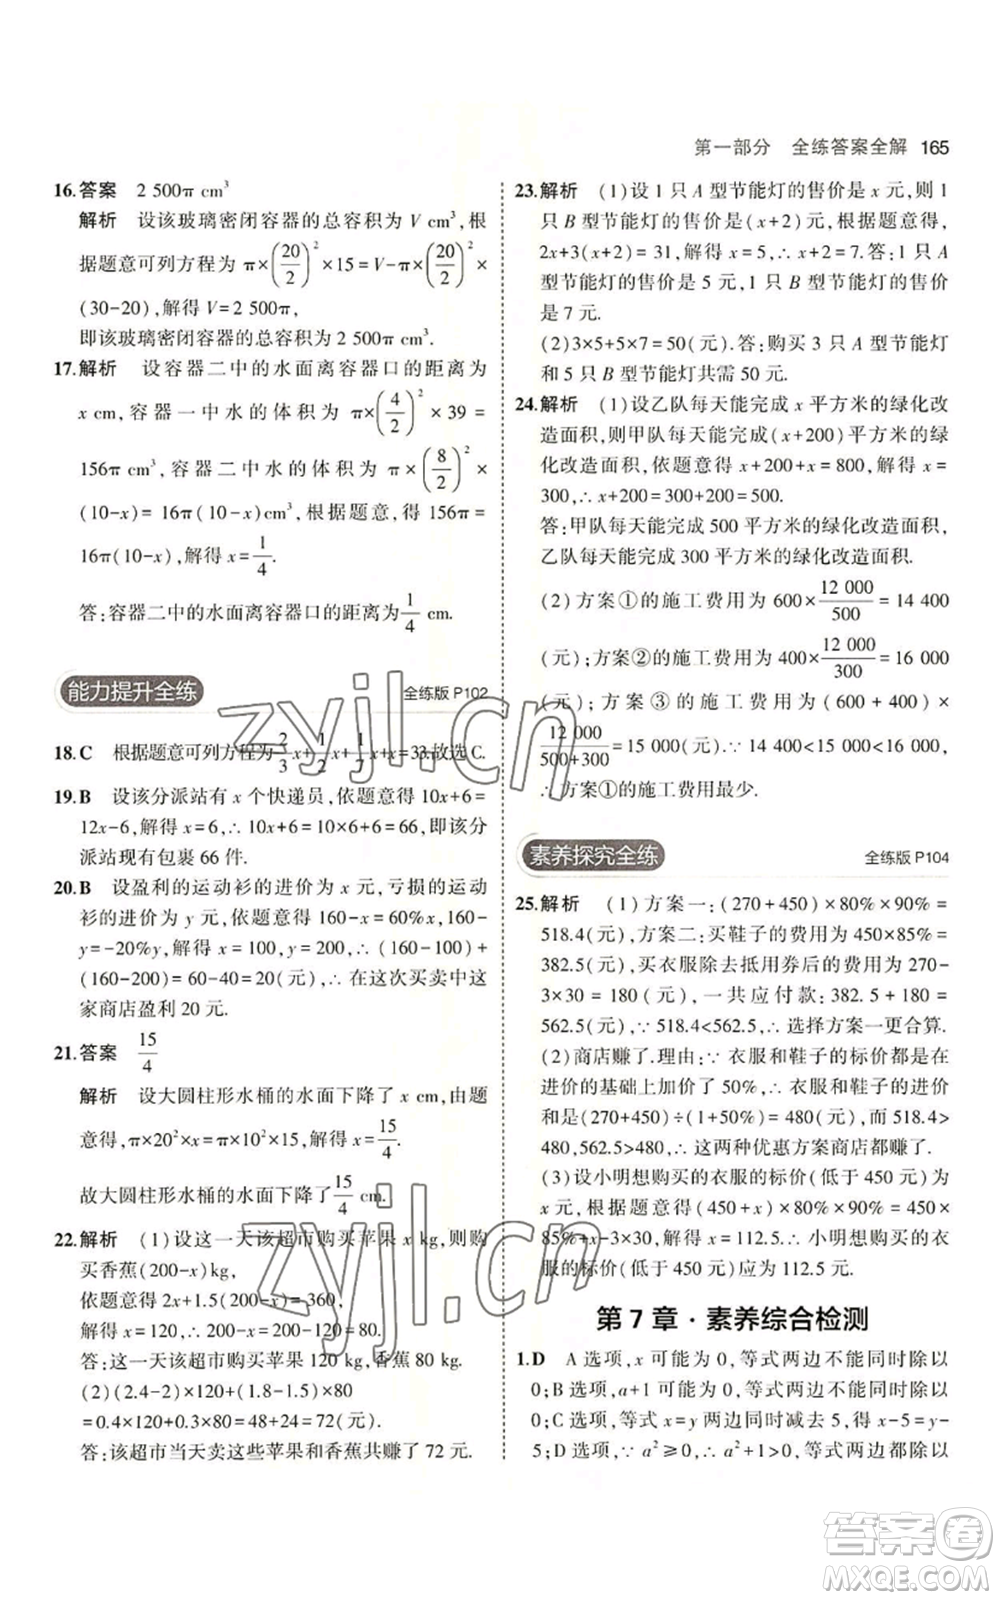 第一部分 全练答案全解 165
16.答案 2 500π cm³
解析 设该玻璃密闭容器的总容积为 V cm³,根
据题意可列方程为 π×(20/2)²×15=V-π×(20/2)²×
(30-20),解得 V=2 500π,
即该玻璃密闭容器的总容积为 2 500π cm³.
17.解析 设容器二中的水面离容器口的距离为
x cm,容器一中水的体积为 π×(4/2)²×39=
156π cm³,容器二中水的体积为 π×(8/2)²×
(10-x)=16π(10-x)cm³,根据题意,得 156π=
16π(10-x),解得 x=1/4.
答:容器二中的水面离容器口的距离为 1/4 cm.
能力提升全练 全练版 P102
18.C 根据题意可列方程为 2/3x+1/2x+1/7x+x=33.故选 C.
19.B 设该分派站有 x 个快递员,依题意得 10x+6=
12x-6,解得 x=6,∴10x+6=10×6+6=66,即该分
派站现有包裹 66 件.
20.B 设盈利的运动衫的进价为 x 元,亏损的运动
衫的进价为 y 元,依题意得 160-x=60%x,160-
y=-20%y,解得 x=100,y=200,∴(160-100)+
(160-200)=60-40=20(元),∴在这次买卖中这
家商店盈利 20 元.
21.答案 15/4
解析 设大圆柱形水桶的水面下降了 x cm,由题
意得,π×20²x=π×10²×15,解得 x=15/4.
故大圆柱形水桶的水面下降了 15/4 cm.
22.解析 (1)设这一天该超市购买苹果 x kg,则购
买香蕉(200-x)kg,
依题意得 2x+1.5(200-x)=360,
解得 x=120,∴200-x=200-120=80.
答:这一天该超市购买苹果 120 kg,香蕉 80 kg.
(2)(2.4-2)×120+(1.8-1.5)×80
=0.4×120+0.3×80=48+24=72(元).
答:该超市当天卖这些苹果和香蕉共赚了 72 元.
23.解析 (1)设 1 只 A 型节能灯的售价是 x 元,则 1
只 B 型节能灯的售价是(x+2)元,根据题意得,
2x+3(x+2)=31,解得 x=5,∴x+2=7.答:1 只 A
型节能灯的售价是 5 元,1 只 B 型节能灯的售价
是 7 元.
(2)3×5+5×7=50(元).答:购买 3 只 A 型节能灯
和 5 只 B 型节能灯共需 50 元.
24.解析 (1)设乙队每天能完成 x 平方米的绿化改
造面积,则甲队每天能完成(x+200)平方米的绿
化改造面积,依题意得 x+200+x=800,解得 x=
300,∴x+200=300+200=500.
答:甲队每天能完成 500 平方米的绿化改造面积,
乙队每天能完成 300 平方米的绿化改造面积.
(2)方案①的施工费用为 600×12 000/500=14 400
(元);方案②的施工费用为 400×12 000/300=16 000
(元);方案③的施工费用为(600+400)×
12 000/(500+300)=15 000(元).∵14 400<15 000<16 000,
∴方案①的施工费用最少.
素养探究全练 全练版 P104
25.解析 (1)方案一:(270+450)×80%×90%=
518.4(元),方案二:买鞋子的费用为 450×85%=
382.5(元),买衣服除去抵用券后的费用为 270-
3×30=180(元),一共应付款:382.5+180=
562.5(元),∵518.4<562.5,∴选择方案一更合算.
(2)商店赚了.理由:∵衣服和鞋子的标价都是在
进价的基础上加价了 50%,∴衣服和鞋子的进价
和是(270+450)÷(1+50%)=480(元),而 518.4>
480,562.5>480,∴这两种优惠方案商店都赚了.
(3)设小明想购买的衣服的标价(低于 450 元)为
x 元,根据题意得(450+x)×80%×90%=450×
85%+x-3×30,解得 x=112.5,∴小明想购买的衣
服的标价(低于 450 元)应为 112.5 元.
第 7 章·素养综合检测
1.D A 选项,x 可能为 0,等式两边不能同时除以
0;B 选项,a+1 可能为 0,等式两边不能同时除以
0;C 选项,等式 x=y 两边同时减去 5,得 x-5=y-
5;D 选项,∵a²≥0,∴a²+1>0,等式两边都除以
zyjl.cn
zyjl.cn
答案圈
MXQE.COM